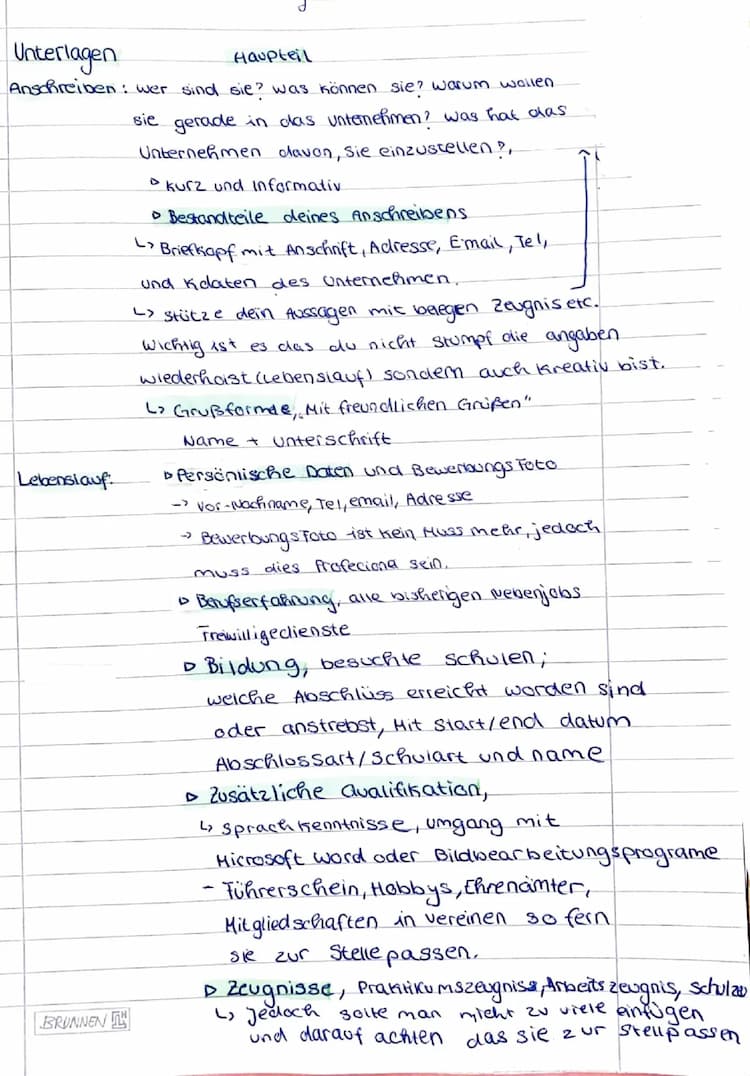 Unterlagen Haupteil
Anschreiben: wer sind sie? was können sie? warum wollen
sie gerade in das unternehmen? was hat das
Unternehmen davon, sie einzustellen?,
▹ kurz und Informativ
▹ Bestandteile deines Anschreibens
↳ Briefkopf mit Anschrift, Adresse, Email, Tel,
und Kdaten des Unternehmen.
↳ Stütze dein Aussagen mit belegen Zeugnis etc.
Wichtig ist es das du nicht stumpf die angaben
wiederholst (Lebenslauf) sondern auch kreativ bist.
↳ Grußformde „Mit freundlichen Grüßen"
Name + unterschrift
Lebenslauf: ▹ Persönlische Daten und Bewerbungs Foto
→ Vor-Nachname, Tel, email, Adresse
→ Bewerbungs Foto ist kein Muss mehr, jedoch
muss dies Profeciona sein.
▹ Berufserfahrung, alle bisherigen Nebenjobs
Freiwilligedienste
▹ Bildung, besuchte schulen;
welche Abschlüss erreicht worden sind
oder anstrebst, Mit Start/end datum
Abschlossart/Schulart und name
▹ Zusätzliche Qualifikation,
↳ sprachkenntnisse, umgang mit
Microsoft word oder Bildbearbeitungsprograme
- Führerschein, Hobbys, Ehrenämter,
Mitgliedschaften in vereinen so fern
sie zur Stelle passen.
▹ Zeugnisse, Praktikumszeugniss, Arbeitszeugnis,
↳ jedoch solte man nicht zu viele einfügen
und darauf achten das sie zur Stellpassen
BRUNNEN